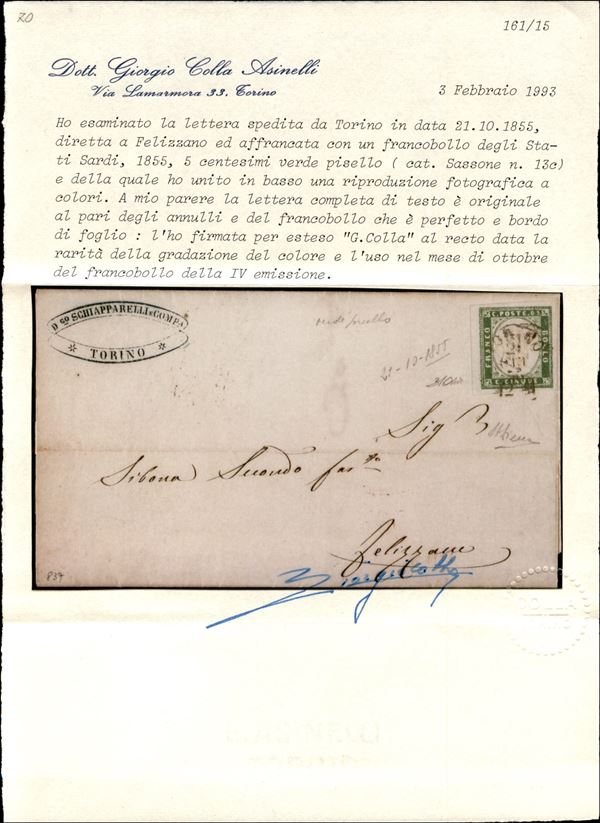 ZO
161/15
Dott. Giorgio Colla Asinelli
Via Lamarmora 33, Torino
3 Febbraio 1993
Ho esaminato la lettera spedita da Torino in data 21.10.1855,
diretta a Felizzano ed affrancata con un francobollo degli Sta-
ti Sardi, 1855, 5 centesimi verde pisello ( cat. Sassone n. 13c)
e della quale ho unito in basso una riproduzione fotografica a
colori. A mio parere la lettera completa di testo è originale
al pari degli annulli e del francobollo che è perfetto e bordo
di foglio : l'ho firmata per esteso "G.Colla" al recto data la
rarità della gradazione del colore e l'uso nel mese di ottobre
del francobollo della IV emissione.
SCHIAPPARELLI & COMPA
TORINO
verde pisello
21-10-1855
C. POSTE 5
FRANCO
BOLLO
C. CINQUE
Sig
Felizzano
837